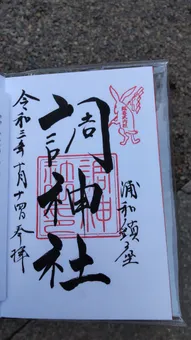 浦和鎮座
調神社
調神
社印
令和三年 月十四日奉拝